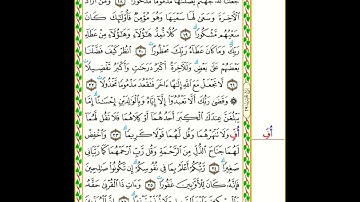 جَعَلْنَا لَهُۥ جَهَنَّمَ يَصْلَىٰهَا مَذْمُومًا مَّدْحُورًا ١٨ وَمَنْ أَرَادَ
ٱلْءَاخِرَةَ وَسَعَىٰ لَهَا سَعْيَهَا وَهُوَ مُؤْمِنٌ فَأُو۟لَٰٓئِكَ كَانَ
سَعْيُهُم مَّشْكُورًا ١٩ كُلًّا نُّمِدُّ هَٰٓؤُلَآءِ وَهَٰٓؤُلَآءِ مِنْ عَطَآءِ
رَبِّكَ وَمَا كَانَ عَطَآءُ رَبِّكَ مَحْظُورًا ٢٠ ٱنظُرْ كَيْفَ فَضَّلْنَا
بَعْضَهُمْ عَلَىٰ بَعْضٍ وَلَلْءَاخِرَةُ أَكْبَرُ دَرَجَٰتٍ وَأَكْبَرُ تَفْضِيلًا
٢١ لَّا تَجْعَلْ مَعَ ٱللَّهِ إِلَٰهًا ءَاخَرَ فَتَقْعُدَ مَذْمُومًا مَّخْذُولًا
٢٢ وَقَضَىٰ رَبُّكَ أَلَّا تَعْبُدُوٓا۟ إِلَّآ إِيَّاهُ وَبِٱلْوَٰلِدَيْنِ إِحْسَٰنًا إِمَّا
يَبْلُغَنَّ عِندَكَ ٱلْكِبَرَ أَحَدُهُمَآ أَوْ كِلَاهُمَا فَلَا تَقُل لَّهُمَآ
أُفٍّ وَلَا تَنْهَرْهُمَا وَقُل لَّهُمَا قَوْلًا كَرِيمًا ٢٣ وَٱخْفِضْ
لَهُمَا جَنَاحَ ٱلذُّلِّ مِنَ ٱلرَّحْمَةِ وَقُل رَّبِّ ٱرْحَمْهُمَا كَمَا رَبَّيَانِي
صَغِيرًا ٢٤ رَّبُّكُمْ أَعْلَمُ بِمَا فِي نُفُوسِكُمْ إِن تَكُونُوا۟ صَٰلِحِينَ
فَإِنَّهُۥ كَانَ لِلْأَوَّٰبِينَ غَفُورًا ٢٥ وَءَاتِ ذَا ٱلْقُرْبَىٰ حَقَّهُۥ
أُفٍّ